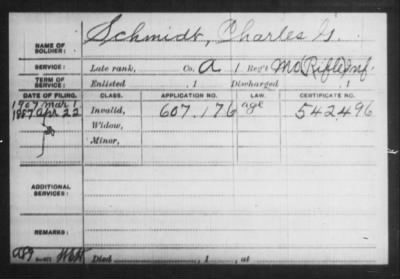 NAME OF SOLDIER: Schmidt, Charles G.
SERVICE: Late rank, Co. A 1 Reg't Mo Rifle Inf.
TERM OF SERVICE: Enlisted , 1 Discharged , 1
DATE OF FILING. CLASS. APPLICATION NO. LAW. CERTIFICATE NO.
1907 Mar 1 age
1887 Apr 22 Invalid, 607.176 542.496
Widow,
Minor,
ADDITIONAL SERVICES:
REMARKS:
Died , 1 , at